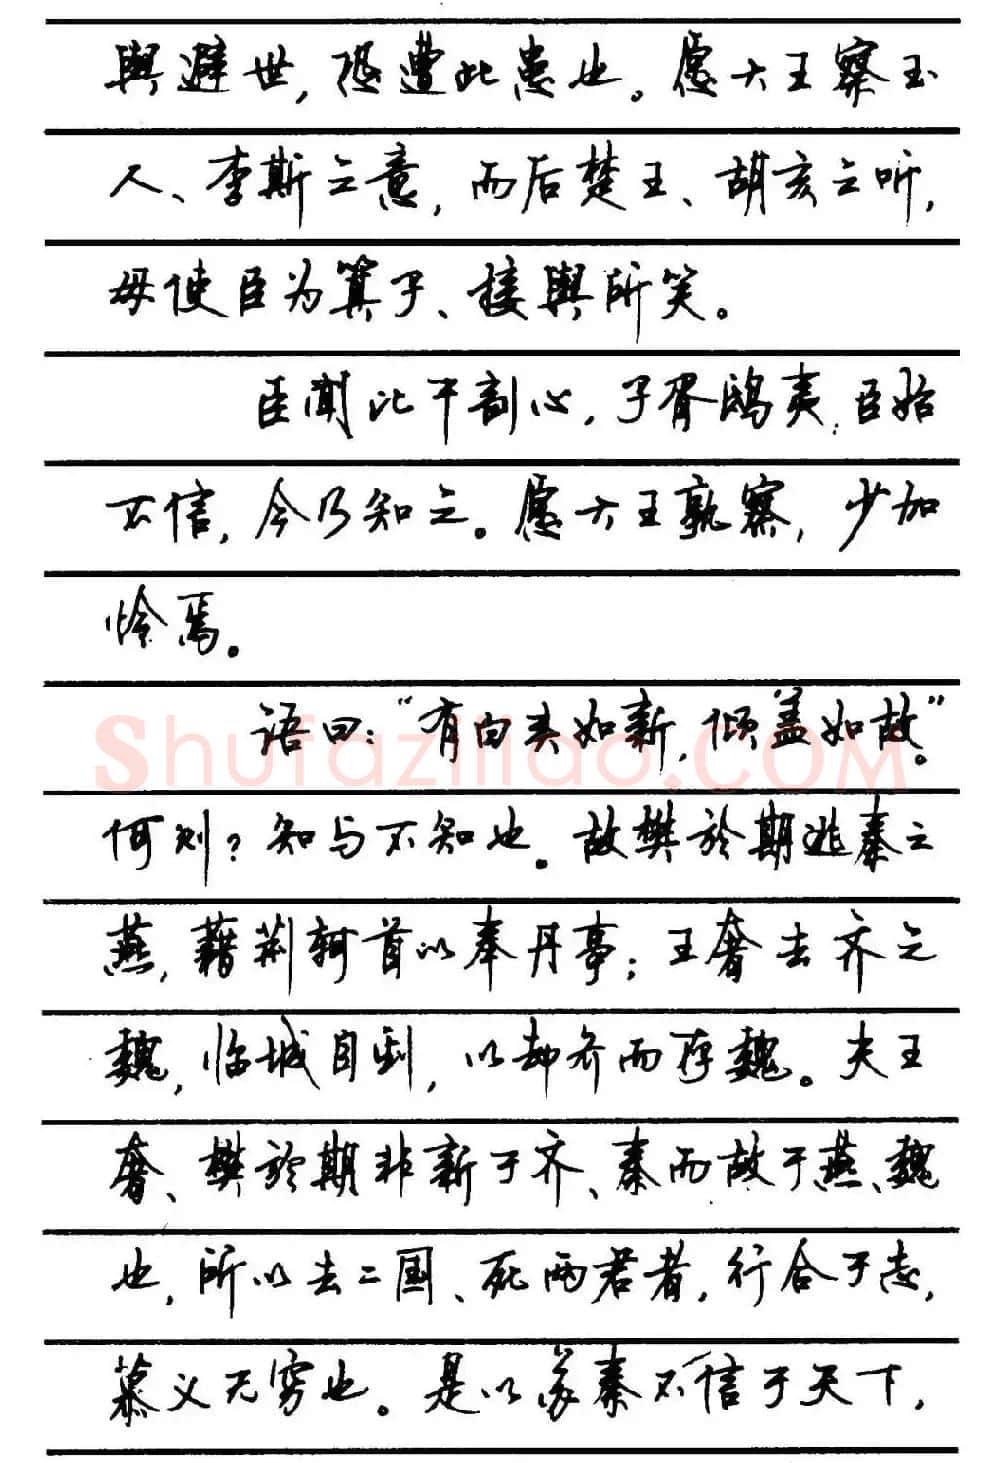 舆避世，恐遭此患也。愿大王察玉
人、李斯之意，而后楚王、胡亥之听，
毋使臣为箕子、接舆所笑。
臣闻比干剖心，子胥鸱夷，臣始
不信，今乃知之。愿大王孰察，少加
怜焉。
语曰：“有白头如新，倾盖如故”。
何则？知与不知也。故樊於期逃秦之
燕，藉荆轲首以奉丹事；王奢去齐之
魏，临城自刭，以却齐而存魏。夫王
奢、樊於期非新于齐、秦而故于燕、魏
也，所以去二国、死两君者，行合于志，
慕义无穷也。是以苏秦不信于天下，
Shufaziliao.COM